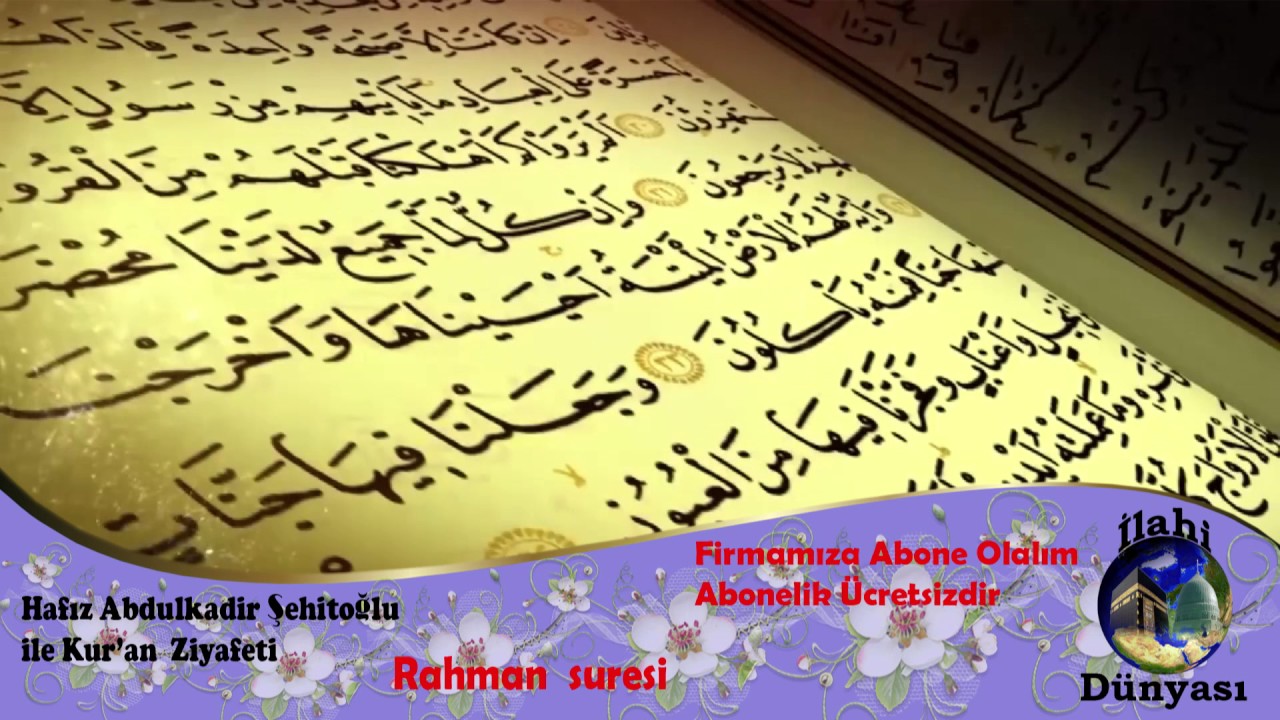 اِنْ كَانَتْ اِلَّا صَيْحَةً وَاحِدَةً فَاِذَا هُمْ
يَا حَسْرَةً عَلَى الْعِبَادِ مَا يَأْتِيهِمْ مِنْ رَسُولٍ اِلَّا
اَلَمْ يَرَوْا كَمْ اَهْلَكْنَا قَبْلَهُمْ مِنَ الْقُرُو
لَا يَرْجِعُونَ ۝٣١ وَاِنْ كُلٌّ لَمَّا جَمِيعٌ لَدَيْنَا مُحْضَرُ
وَاٰيَةٌ لَهُمُ الْاَرْضُ الْمَيْتَةُ اَحْيَيْنَاهَا وَاَخْرَجْنَا
مِنْهَا حَبًّا فَمِنْهُ يَأْكُلُونَ ۝٣٣ وَجَعَلْنَا فِيهَا جَنَّاتٍ
نَخِيلٍ وَاَعْنَابٍ وَفَجَّرْنَا فِيهَا مِنَ الْعُيُونِ
ثَمَرِهِ وَمَا عَمِلَتْهُ
الْاَزْوَاجَ
Firmamıza Abone Olalım
Abonelik Ücretsizdir
Hafız Abdulkadir Şehitoğlu
ile Kur'an Ziyafeti
Rahman suresi
ilahi
Dünyası